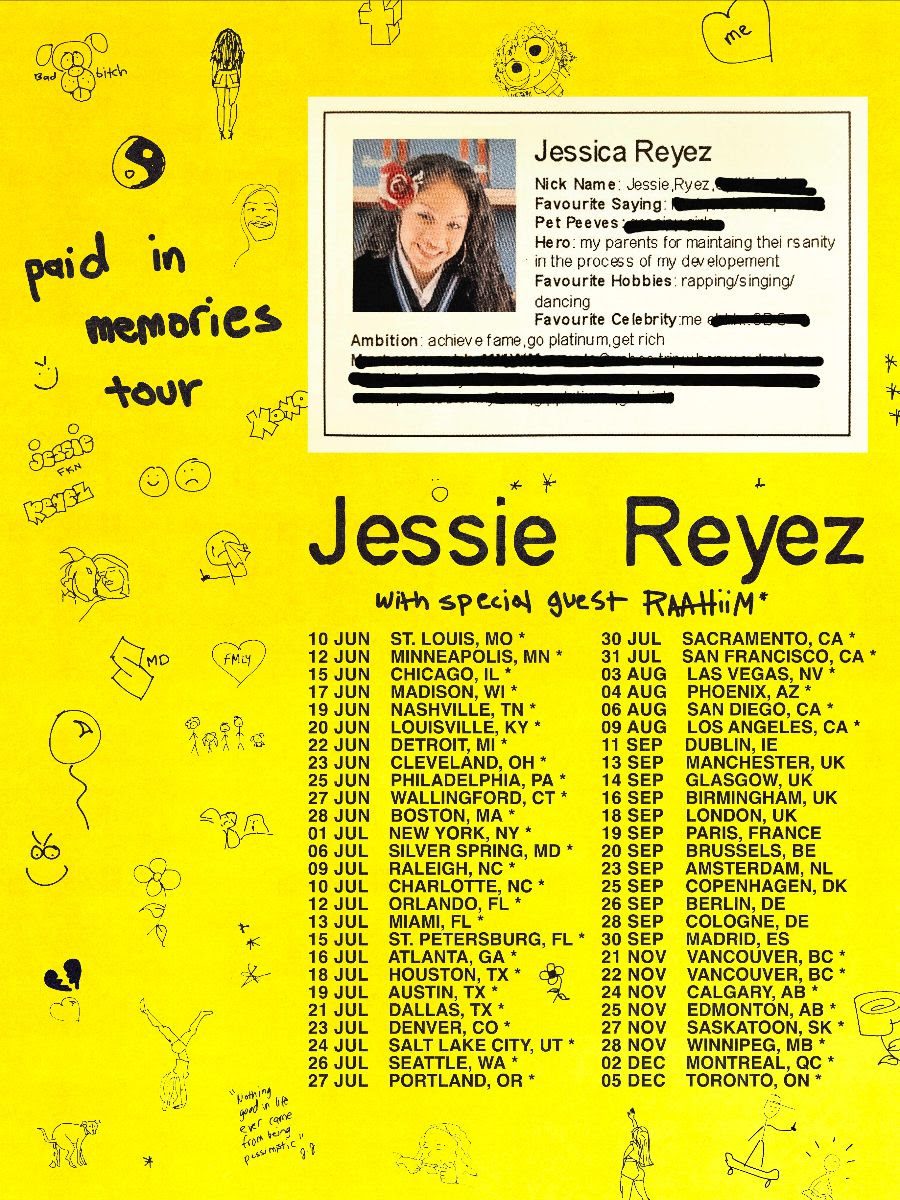 Bad bitch
me
Jessica Reyez
Nick Name: Jessie,Ryez,
Favourite Saying:
Pet Peeves:
Hero: my parents for maintaing thei rsanity
in the process of my developement
Favourite Hobbies: rapping/singing/
dancing
Favourite Celebrity:me
Ambition: achieve fame,go platinum,get rich
paid in
memories
tour
jessie
FKN
REYEZ
Jessie Reyez
with special guest RAAHiiM*
MD
FMLY
10 JUN ST. LOUIS, MO *
12 JUN MINNEAPOLIS, MN *
15 JUN CHICAGO, IL *
17 JUN MADISON, WI *
19 JUN NASHVILLE, TN *
20 JUN LOUISVILLE, KY *
22 JUN DETROIT, MI *
23 JUN CLEVELAND, OH *
25 JUN PHILADELPHIA, PA *
27 JUN WALLINGFORD, CT *
28 JUN BOSTON, MA *
01 JUL NEW YORK, NY *
06 JUL SILVER SPRING, MD *
09 JUL RALEIGH, NC *
10 JUL CHARLOTTE, NC *
12 JUL ORLANDO, FL *
13 JUL MIAMI, FL *
15 JUL ST. PETERSBURG, FL *
16 JUL ATLANTA, GA *
18 JUL HOUSTON, TX *
19 JUL AUSTIN, TX *
21 JUL DALLAS, TX *
23 JUL DENVER, CO *
24 JUL SALT LAKE CITY, UT *
26 JUL SEATTLE, WA *
27 JUL PORTLAND, OR *
30 JUL SACRAMENTO, CA *
31 JUL SAN FRANCISCO, CA *
03 AUG LAS VEGAS, NV *
04 AUG PHOENIX, AZ *
06 AUG SAN DIEGO, CA *
09 AUG LOS ANGELES, CA *
11 SEP DUBLIN, IE
13 SEP MANCHESTER, UK
14 SEP GLASGOW, UK
16 SEP BIRMINGHAM, UK
18 SEP LONDON, UK
19 SEP PARIS, FRANCE
20 SEP BRUSSELS, BE
23 SEP AMSTERDAM, NL
25 SEP COPENHAGEN, DK
26 SEP BERLIN, DE
28 SEP COLOGNE, DE
30 SEP MADRID, ES
21 NOV VANCOUVER, BC *
22 NOV VANCOUVER, BC *
24 NOV CALGARY, AB *
25 NOV EDMONTON, AB *
27 NOV SASKATOON, SK *
28 NOV WINNIPEG, MB *
02 DEC MONTREAL, QC *
05 DEC TORONTO, ON *
"Nothing
good in life
ever came
from being
pessimistic"